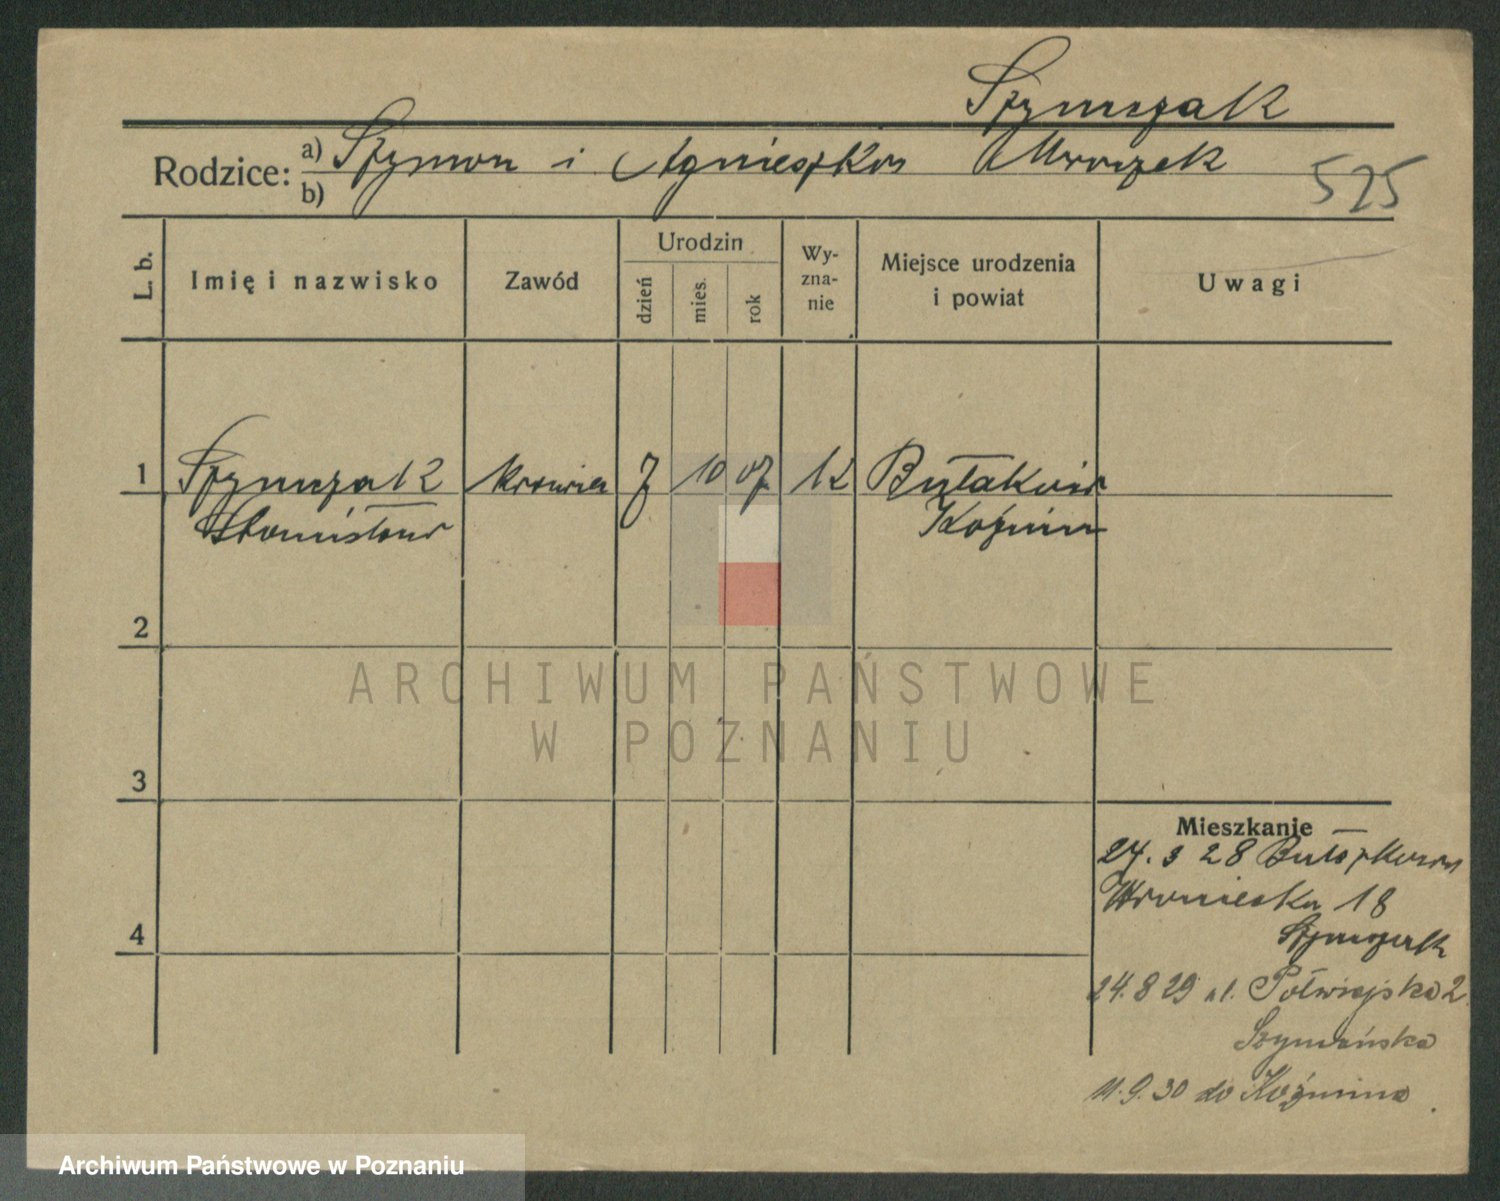 Szymczak
Rodzice: a) Szymon i Agnieszka Mroczek
b)
525
L. b.
Imię i nazwisko
Zawód
Urodzin
dzień
mies.
rok
Wy-
zna-
nie
Miejsce urodzenia
i powiat
Uwagi
1 Szymczak krawiec 7 10 07 k Bułaków
Stanisław Koźmin
2
3
4
ARCHIWUM PAŃSTWOWE
W POZNANIU
Mieszkanie
24. 3 28
Wroniecka 18
Szymczak
24. 8 29 ul. Półwiejska 2
Szymańska
11. 9. 30 do Koźmina
Archiwum Państwowe w Poznaniu